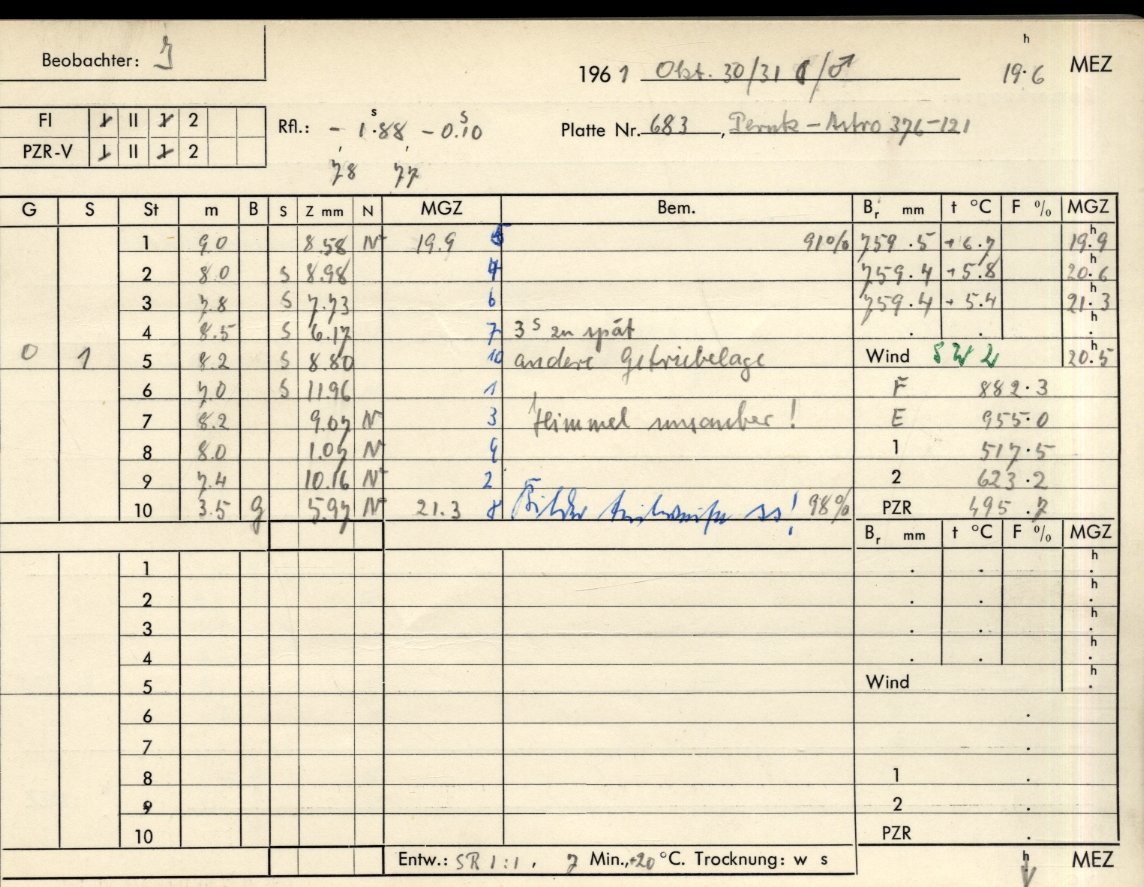 Beobachter: J
1961 Okt. 30/31 /♂ 19h.6 MEZ
FI 1 II 1 2
PZR-V 1 II 1 2
Rfl.: - 1s.88 - 0s.10
78 77
Platte Nr. 683, Perutz-Astro 376-121
G S St m B S Z mm N MGZ Bem. Br mm t °C F % MGZ
1 9.0 8.58 N 19.9 5 91% 759.5 +6.7 19h.9
2 8.0 S 8.98 4 759.4 +5.8 20h.6
3 7.8 S 7.73 6 759.4 +5.4 21h.3
4 8.5 S 6.17 7 3s zu spät . . h.
0 1 5 8.2 S 8.80 10 andere Getriebelage Wind SW 2 20h.5
6 7.0 S 11.96 1 F 882.3
7 8.2 9.07 N 3 Himmel unsauber! E 955.0
8 8.0 1.07 N 9 1 517.5
9 7.4 10.16 N 2 2 623.2
10 3.5 g 5.97 N 21.3 8 Bilder ss! 98% PZR 495.7
Br mm t °C F % MGZ
1 . . h.
2 . . h.
3 . . h.
4 . . h.
5 Wind h.
6 .
7 .
8 1 .
9 2 .
10 PZR .
Entw.: SR 1:1, 7 Min., +20 °C. Trocknung: w s h MEZ